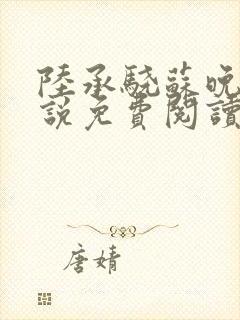 陸承驍蘇晚
說免費閱讀
唐婧